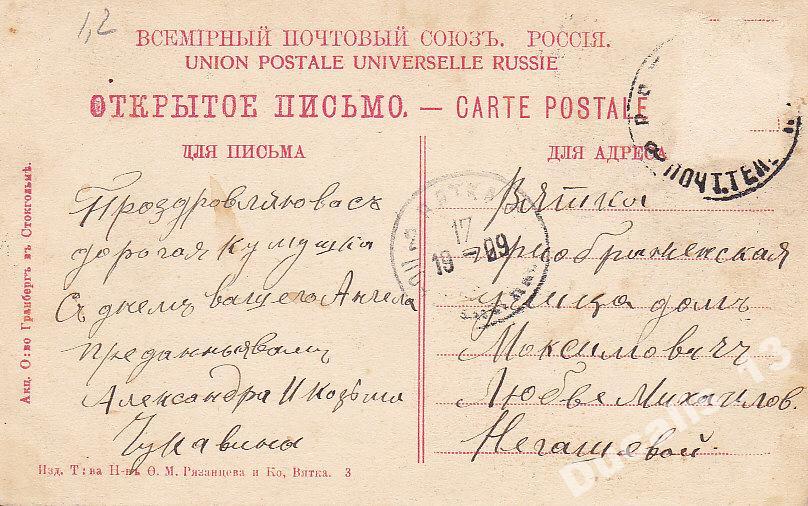 1,2
ВСЕМІРНЫЙ ПОЧТОВЫЙ СОЮЗЪ. РОССІЯ.
UNION POSTALE UNIVERSELLE RUSSIE
ОТКРЫТОЕ ПИСЬМО. — CARTE POSTALE
ДЛЯ ПИСЬМА
Проздровляювасъ
дорогая кумушка
Съ днемъ вашего Ангела
преданныявамъ
Александра И Козьма
Чукавины
ДЛЯ АДРЕСА
Вятка
приображенская
улица домъ
Максимовичъ
Любве Михайлов.
Негашевой.
ВЯТКА
17
19 - 09
ПОЧТ.ТЕЛ
Акц. О:во Гранбергъ въ Стокгольмѣ.
Изд. Т:ва Н-въ Ѳ. М. Рязанцева и Ко, Вятка. 3
Ducalis_13